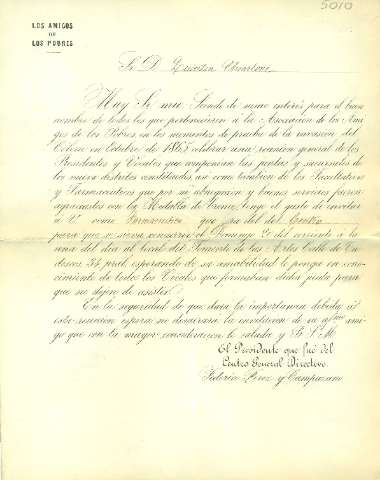 5010
LOS AMIGOS
DE
LOS POBRES
Sr. D.
Muy Sr. mio: Siendo de sumo interés para el buen
nombre de todos los que pertenecieron á la Asociacion de los Ami
gos de los Pobres en los momentos de prueba de la invasion del
Cólera en Octubre de 1865 celebrar una reunion general de los
Presidentes y Vocales que componian las juntas y sucursales de
los nueve distritos constituidos, asi como tambien de los Facultativos
y Farmaceuticos que por su abnegacion y buenos servicios fueron
agraciados con la Medalla de tengo el gusto de invitar
á V. como que fué del Centro
para que se sirva concurrir el Domingo 2 del corriente á la
una del dia al local del Fomento de las Artes Calle de
34 pral. esperando de su amabilidad lo ponga en cono
cimiento de todos los Vocales que formaban dicha junta para
que no dejen de asistir.
En la seguridad de que dará la importancia debida á
esta reunion espera no desairará la invitacion de su afmo. ami
go que con la mayor consideracion le saluda y B. S. M.
El Presidente que fué del
Centro General Directivo.
Federico Perez y Campuzano